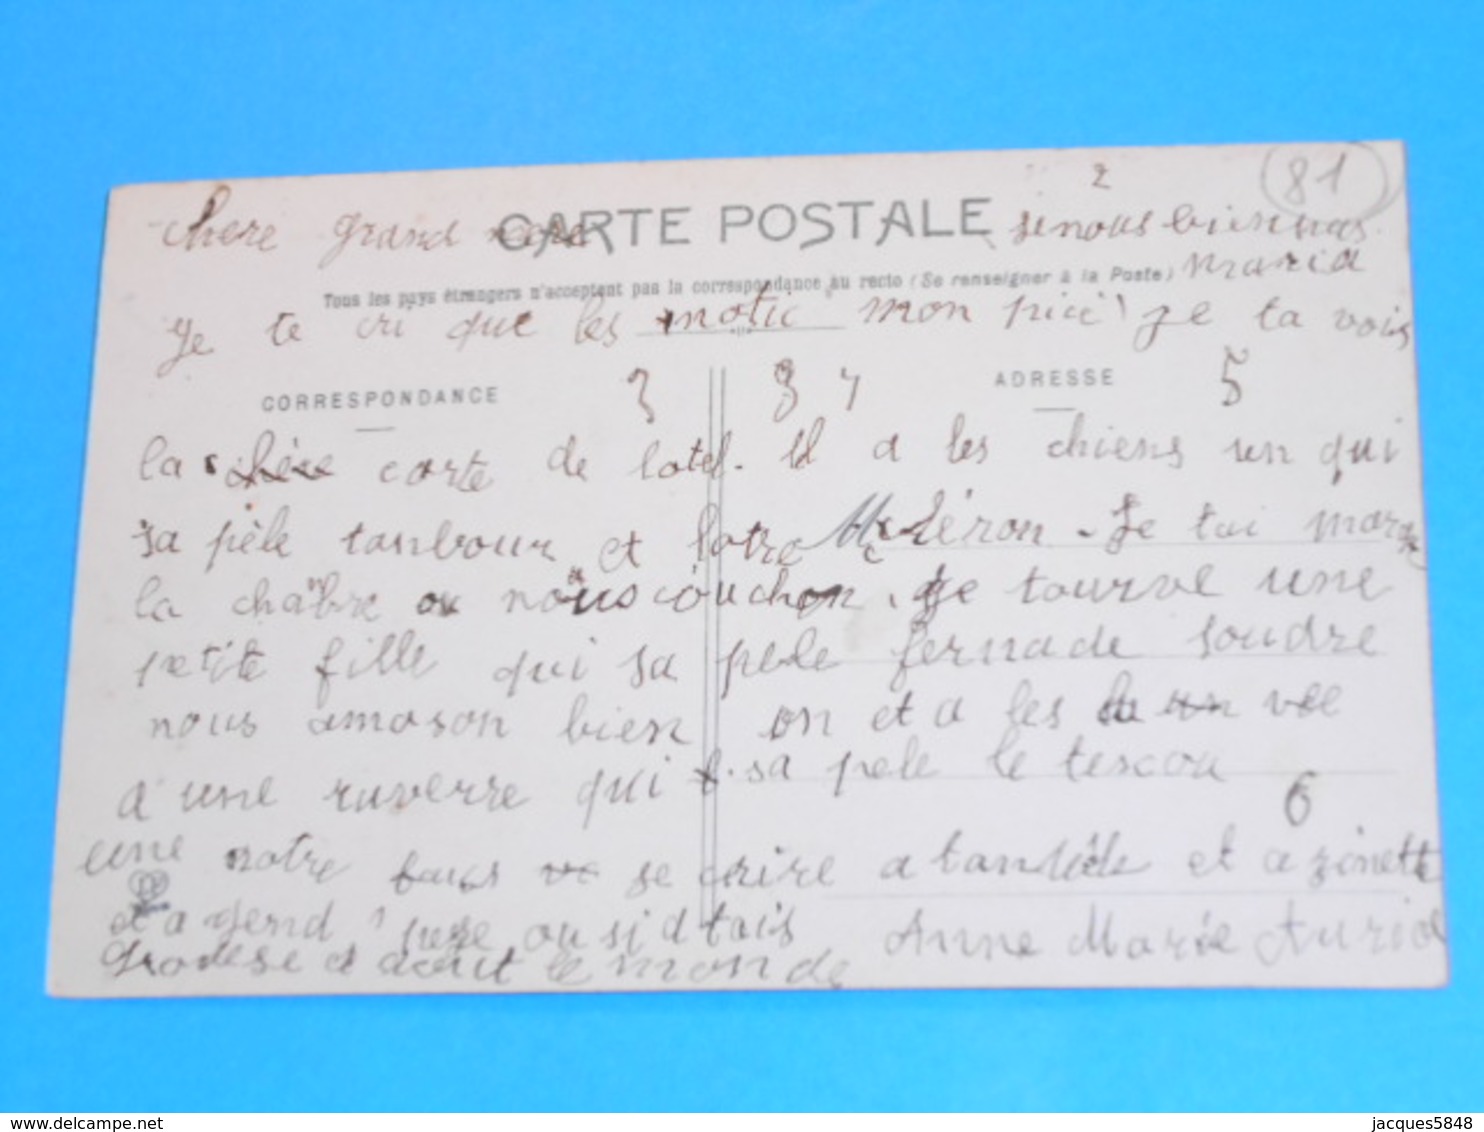 2
81
Chere grand mere
CARTE POSTALE
je nous bien
Maria
Tous les pays étrangers n'acceptent pas la correspondance au recto (Se renseigner à la Poste)
Je te cri que les mon je ta vois
CORRESPONDANCE
3 3 4
ADRESSE
5
la carte de lotel. Il a les chiens un qui
sa pèle tanbour et lotre Méréron. Je tai
la chanbre ou nous couchon. Je tourve une
petite fille qui sa pele fernade soudre
nous amoson bien on et a les vee
a une ruverre qui sa pele le tescou
6
une notre se crire a et a zinette
et a gend pere ou si d tais Anne Marie Auriol
et tout le monde
jacques5848